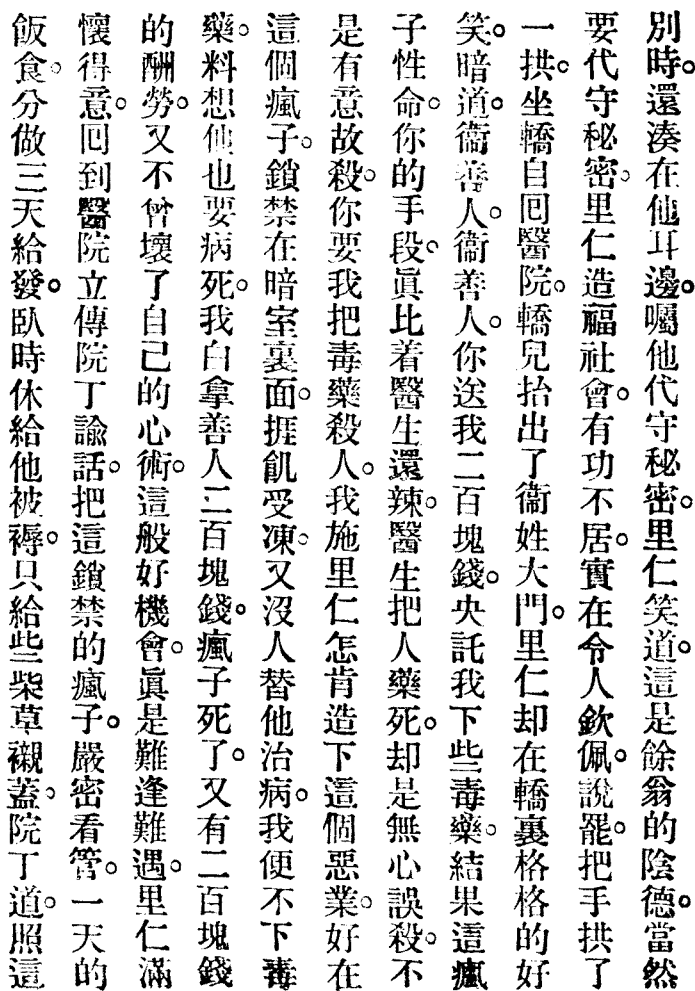 別時。還湊在他耳邊。囑他代守秘密。里仁笑道。這是餘翁的陰德。當然
要代守秘密。里仁造福社會。有功不居。實在令人欽佩。說罷。把手拱了
一拱。坐轎自囘醫院。轎兒抬出了衞姓大門。里仁却在轎裏格格的好
笑。暗道。衞善人。衞善人。你送我二百塊錢。央託我下些毒藥。結果這瘋
子性命。你的手段。眞比着醫生還辣。醫生把人藥死。却是無心誤殺。不
是有意故殺。你要我把毒藥殺人。我施里仁怎肯造下這個惡業。好在
這個瘋子。鎖禁在暗室裏面。捱飢受凍。又沒人替他治病。我便不下毒
藥。料想他也要病死。我白拿善人二百塊錢。瘋子死了。又有二百塊錢
的酬勞。又不曾壞了自己的心術。這般好機會。眞是難逢難遇。里仁滿
懷得意。囘到醫院。立傳院丁諭話。把這鎖禁的瘋子。嚴密看管。一天的
飯食。分做三天給發。臥時休給他被褥。只給些柴草襯蓋。院丁道。照這